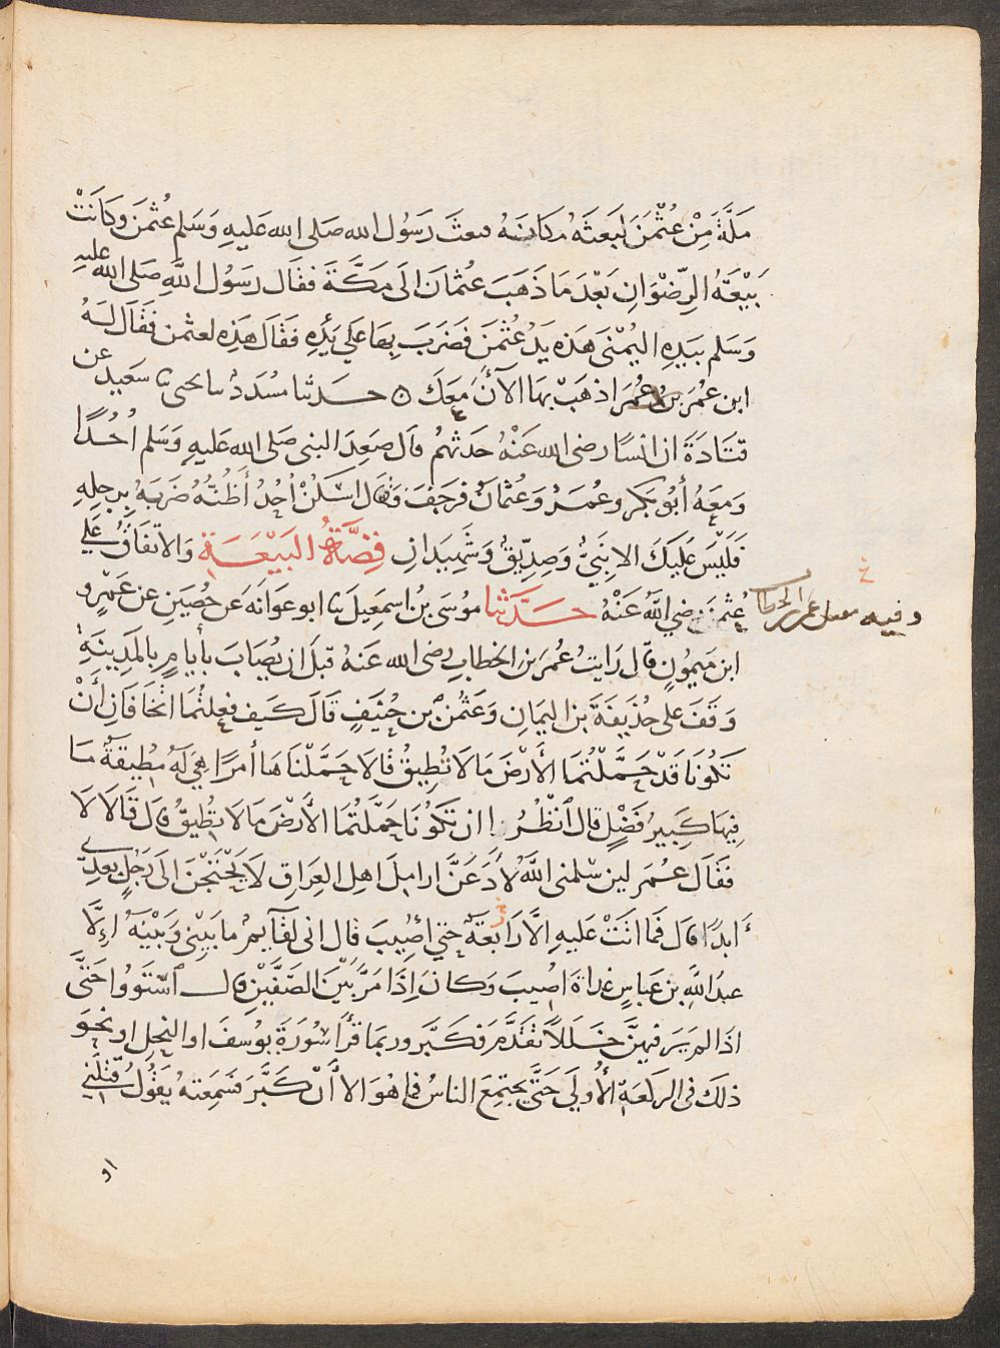 مَكَّةَ مِنْ عُثْمٰنَ لَبَعَثَهُ مَكَانَهُ فبعثَ رَسُول الله صَلى الله عَليهِ وَسَلم عُثمٰنَ وكَانَتْ
بَيْعَةُ الرِّضْوَانِ بَعْدَ مَا ذَهَبَ عُثمانَ الَى مَكَّةَ فقَال رسَوُل اللَّهِ صَلى الله عليهِ
وَسَلم بيَدِهِ اليُمْنَى هَذه يَدُ عُثْمٰنَ فَضرَبَ بِهَا عَلي يَدِهِ فقالَ هَذِهِ لعثمٰن فَقَالَ لَهُ
ابن عُمَر اذهَبْ بهَا الآنَ مَعَكَ ه حَدثنا مُسَدَدُ نا يحيى نا سَعيد عن
قتَادَةَ ان انسًا رضى الله عَنْهُ حَدثهُم قال صَعِدَ النبى صَلى الله عَليهِ وَسَلم اُحُدًا
وَمعَهُ أَبُو بَكر وعُمَرُ وَعُثمانُ فرَجَفَ وَقال اسْكُنْ اُحُدُ أَظُنُّهُ ضَرَبَهُ بِرِجلِهِ
فَلَيْسَ عَلَيكَ الا نَبِيُّ وَصِدِّيقُ وَشَهِيدَانِ قِصَّةُ البَيْعَةِ وَالاتفَاقُ عَلي
عُثمٰنَ رضي اللهُ عَنْهُ حَدَّثَنا موُسَى بنُ اسمعِيلَ نا ابو عَوَانَه عَن حُصَينِ عن عَمْرٍو
وفيه مقتل عمر بن الخطاب
ابن مَيمُونٍ قال رَايتُ عُمَرَ بن الخطابِ رضى الله عَنهُ قبلَ ان يُصَابَ بأيامٍ بالمَدِينَةِ
وَقَفَ على حُذَيفَةَ بن اليمَانِ وَعثمٰنَ بن حُنَيفٍ قالَ كَيف فعلتُما اتخَافَانِ أَنْ
تَكُونَا قَدْ حَمَّلتُمَا الأَرْضَ مَا لَا تُطِيقُ قَالَا حَمَّلنَاهَا أمرًا هِيَ لَهُ مُطِيقَةٌ مَا
فِيهَا كَبِيرُ فَضْلٍ قال انْظُرْ ان تكُونَا حَمَّلتُمَا الأَرْضَ مَا لَا تطِيقُ قالَ قَالَا لَا
فقَالَ عُمَر لين سْلمنى اللَّهُ لأَدَعَنَّ ارامِلَ اهلِ العِرَاقِ لَا يَحْتَجْنَ الَى رَجُلٍ بعدِى
ابدًا قال فَمَا اتَتْ عَليهِ الَّا رَابعَةٌ حتي أُصِيبَ قال انى لقَآيمٌ ما بَيْنِى وَبَيْنَهُ اِلَّا
عبدُ اللَّهِ بن عَباسٍ غدَاةَ اصِيبَ وَكانَ اِذَا مَرَّ بَيْنَ الصَّفَّيْنِ قال اسْتَوُوا حَتَّى
اذَا لم يَرَ فيهنَّ خَلَلًا تقَدَّمَ فكَبَّر وربمَا قرَأَ سُورَةَ يوُسفَ او النحلِ او نحوَ
ذلكَ فى الركعَةِ الأُولَي حَتَّى يجتمِعَ الناسُ فما هُوَ الا أَنْ كَبَّرَ فسَمِعتهُ يَقُولُ قتَلَنِي
او